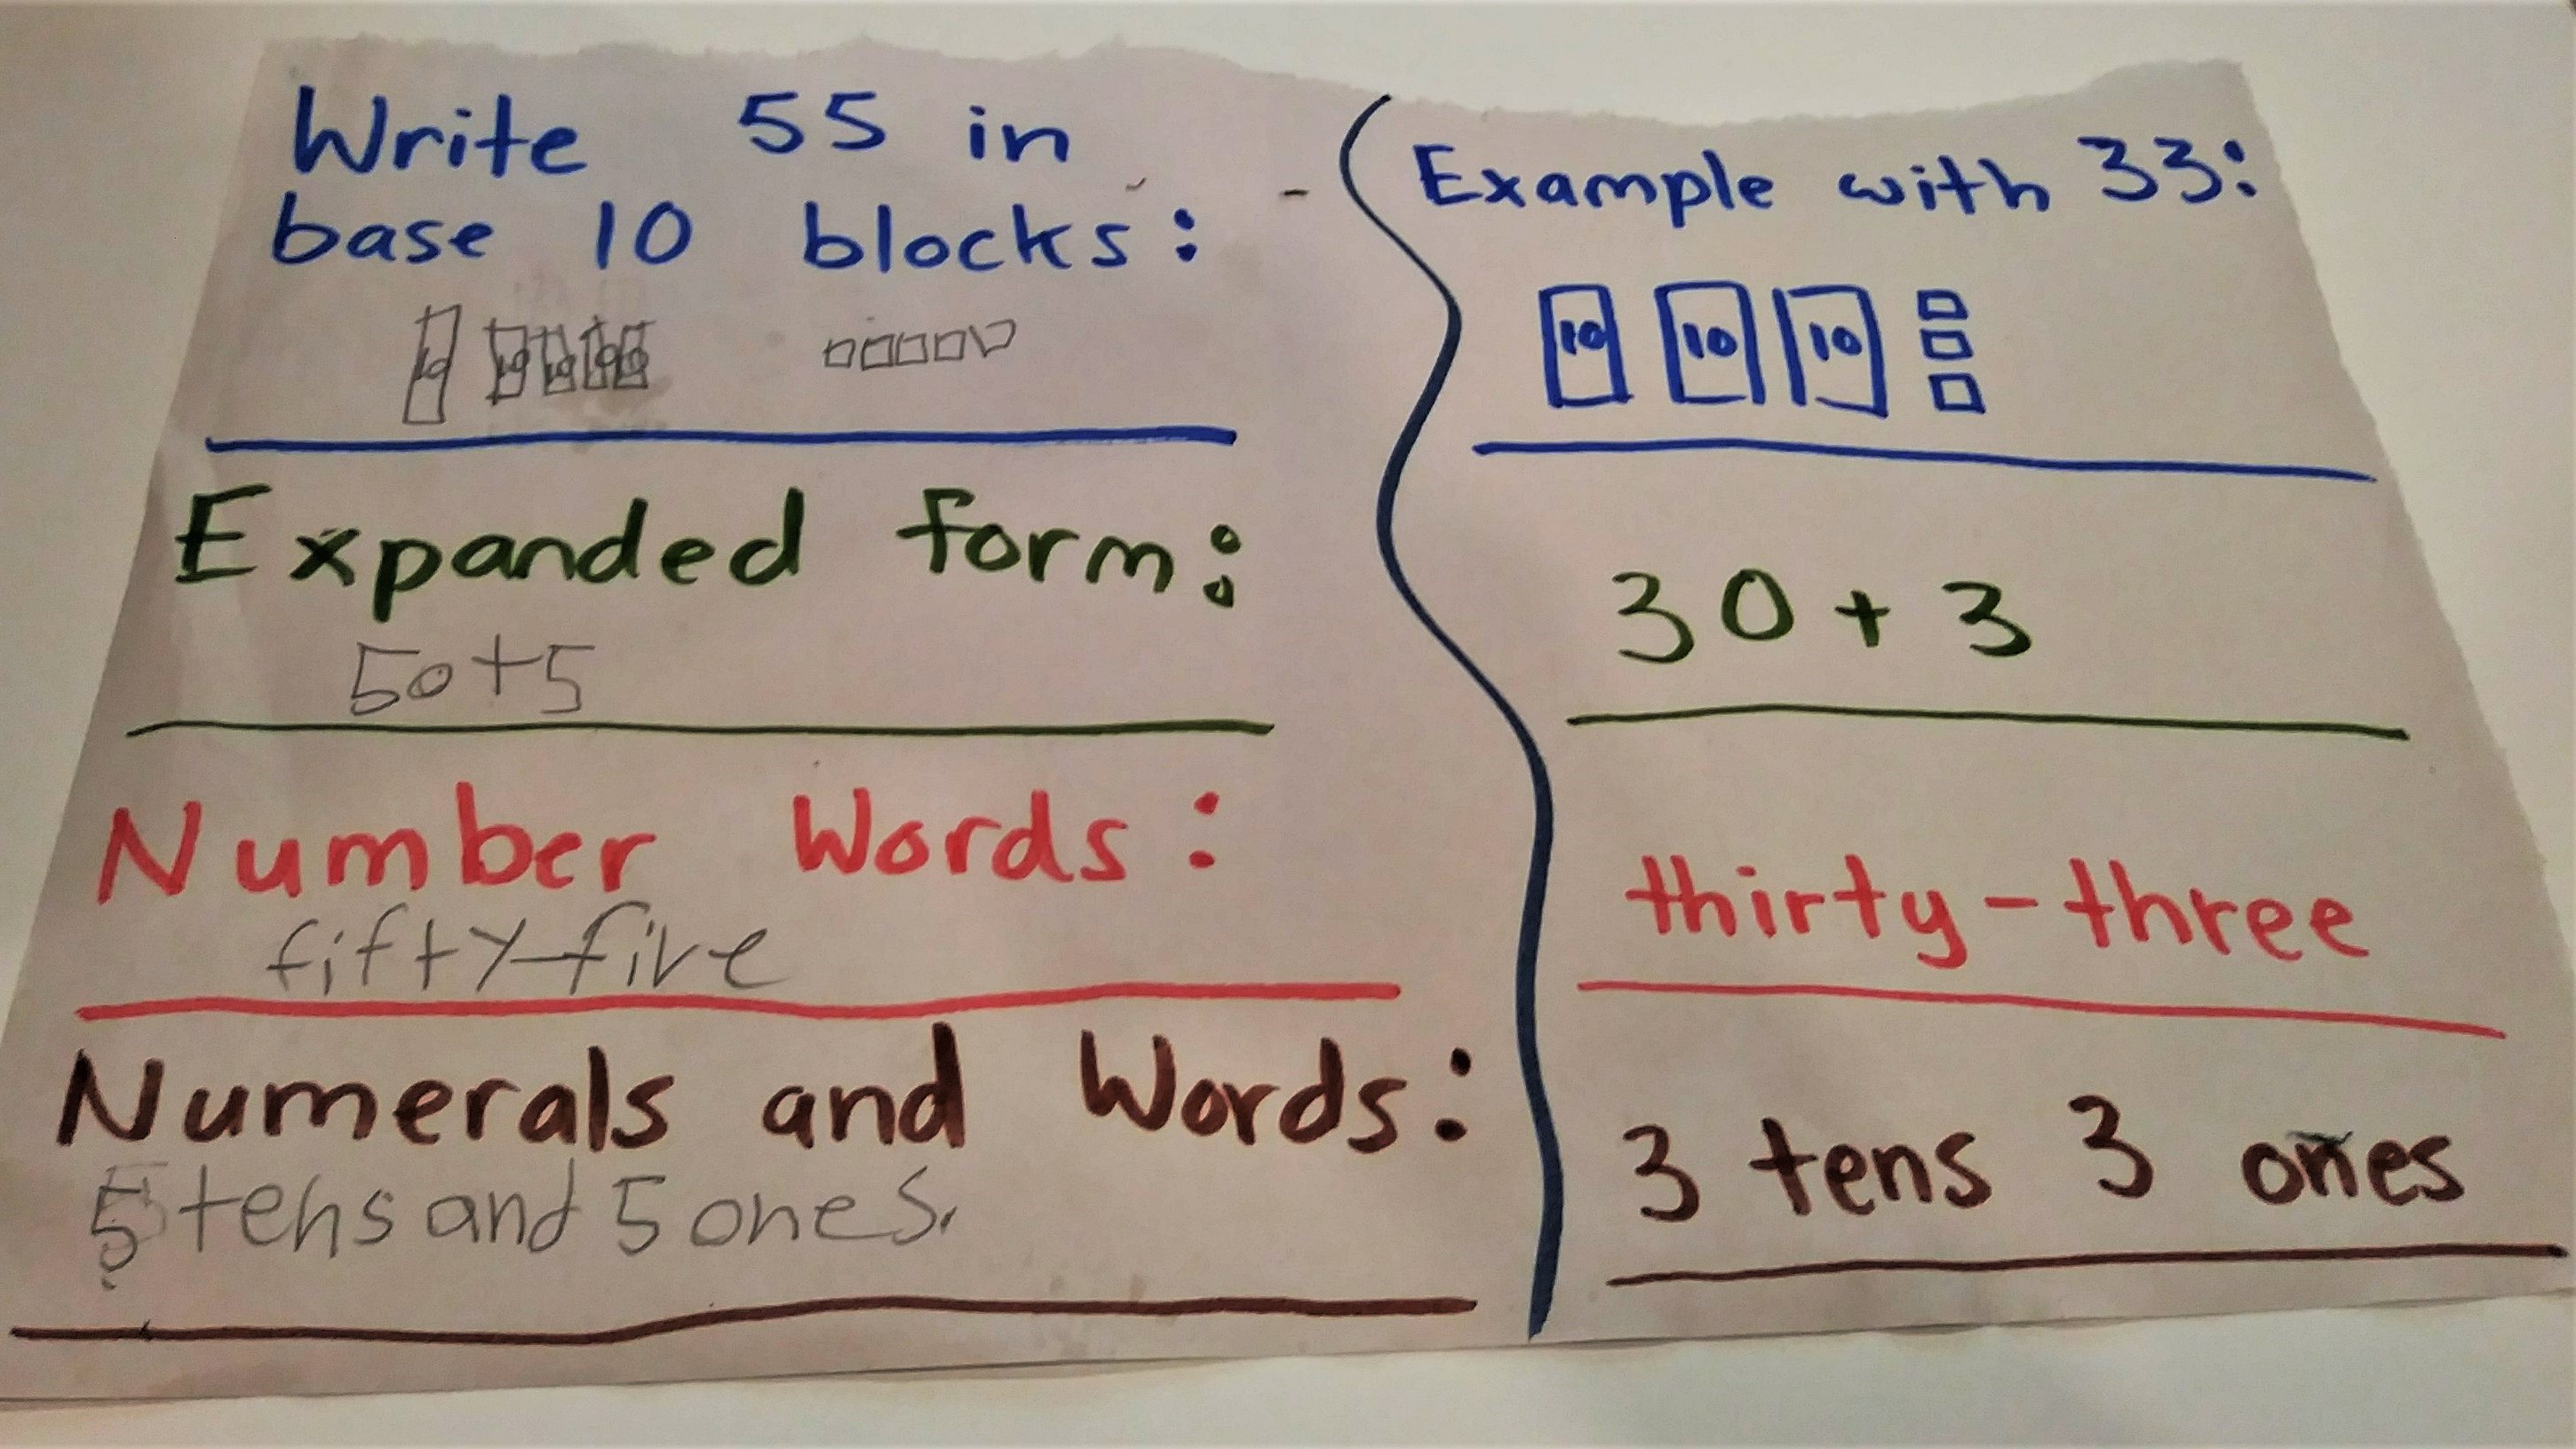 Write 55 in
base 10 blocks:
10 10 10 10 10
Expanded form:
50+5
Number Words:
fifty-five
Numerals and Words:
5 tens and 5 ones.
Example with 33:
10 10 10
30 + 3
thirty-three
3 tens 3 ones